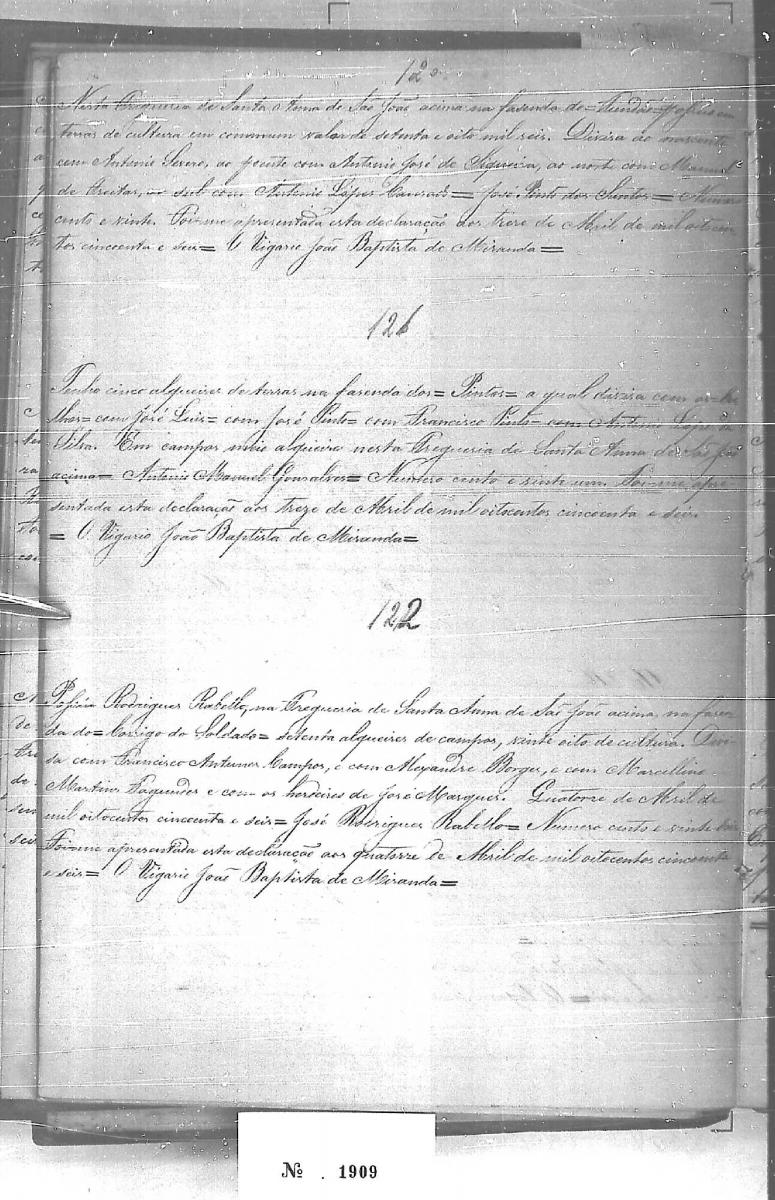 120
Nesta Freguesia de Santa Anna de São João acima na fazenda do = Fundão =
terras de cultura em commum valor de setenta e oito mil reis. Divisa ao nascente
com Antonio Severo, ao poente com Antonio José de Siqueira, ao norte com Manoel
de Freitas, ao sul com Antonio Lopes = José Pinto dos Santos = Numero
cento e vinte. Foi-me apresentada esta declaração aos treze de Abril de mil oitocen
tos cincoenta e seis = O Vigario João Baptista de Miranda =
121
Tenho cinco alqueires de terras na fazenda dos = Pintos = a qual divisa com os
com José Luis = com José Pinto = com Francisco Pinto = com Antonio Lopes da
Silva. Em campos meio alqueire nesta Freguesia de Santa Anna de São João
acima = Antonio Manoel Gonsalves = Numero cento e vinte um. Foi-me apre
sentada esta declaração aos treze de Abril de mil oitocentos cincoenta e seis
= O Vigario João Baptista de Miranda =
122
Rodrigues Rabello, na Freguesia de Santa Anna de São João acima, na fazen
da do = Corrigo do Soldado = setenta alqueires de campos, vinte oito de cultura. Divi
sa com Francisco Antunes Campos, e com Alexandre Borges, e com Marcellino
Martins Fagundes e com os herdeiros de José Marques. Quatorze de Abril de
mil oitocentos cincoenta e seis = José Rodrigues Rabello = Numero cento e vinte dois
Foi-me apresentada esta declaração aos quatorze de Abril de mil oitocentos cincoenta
e seis = O Vigario João Baptista de Miranda =
№ . 1909